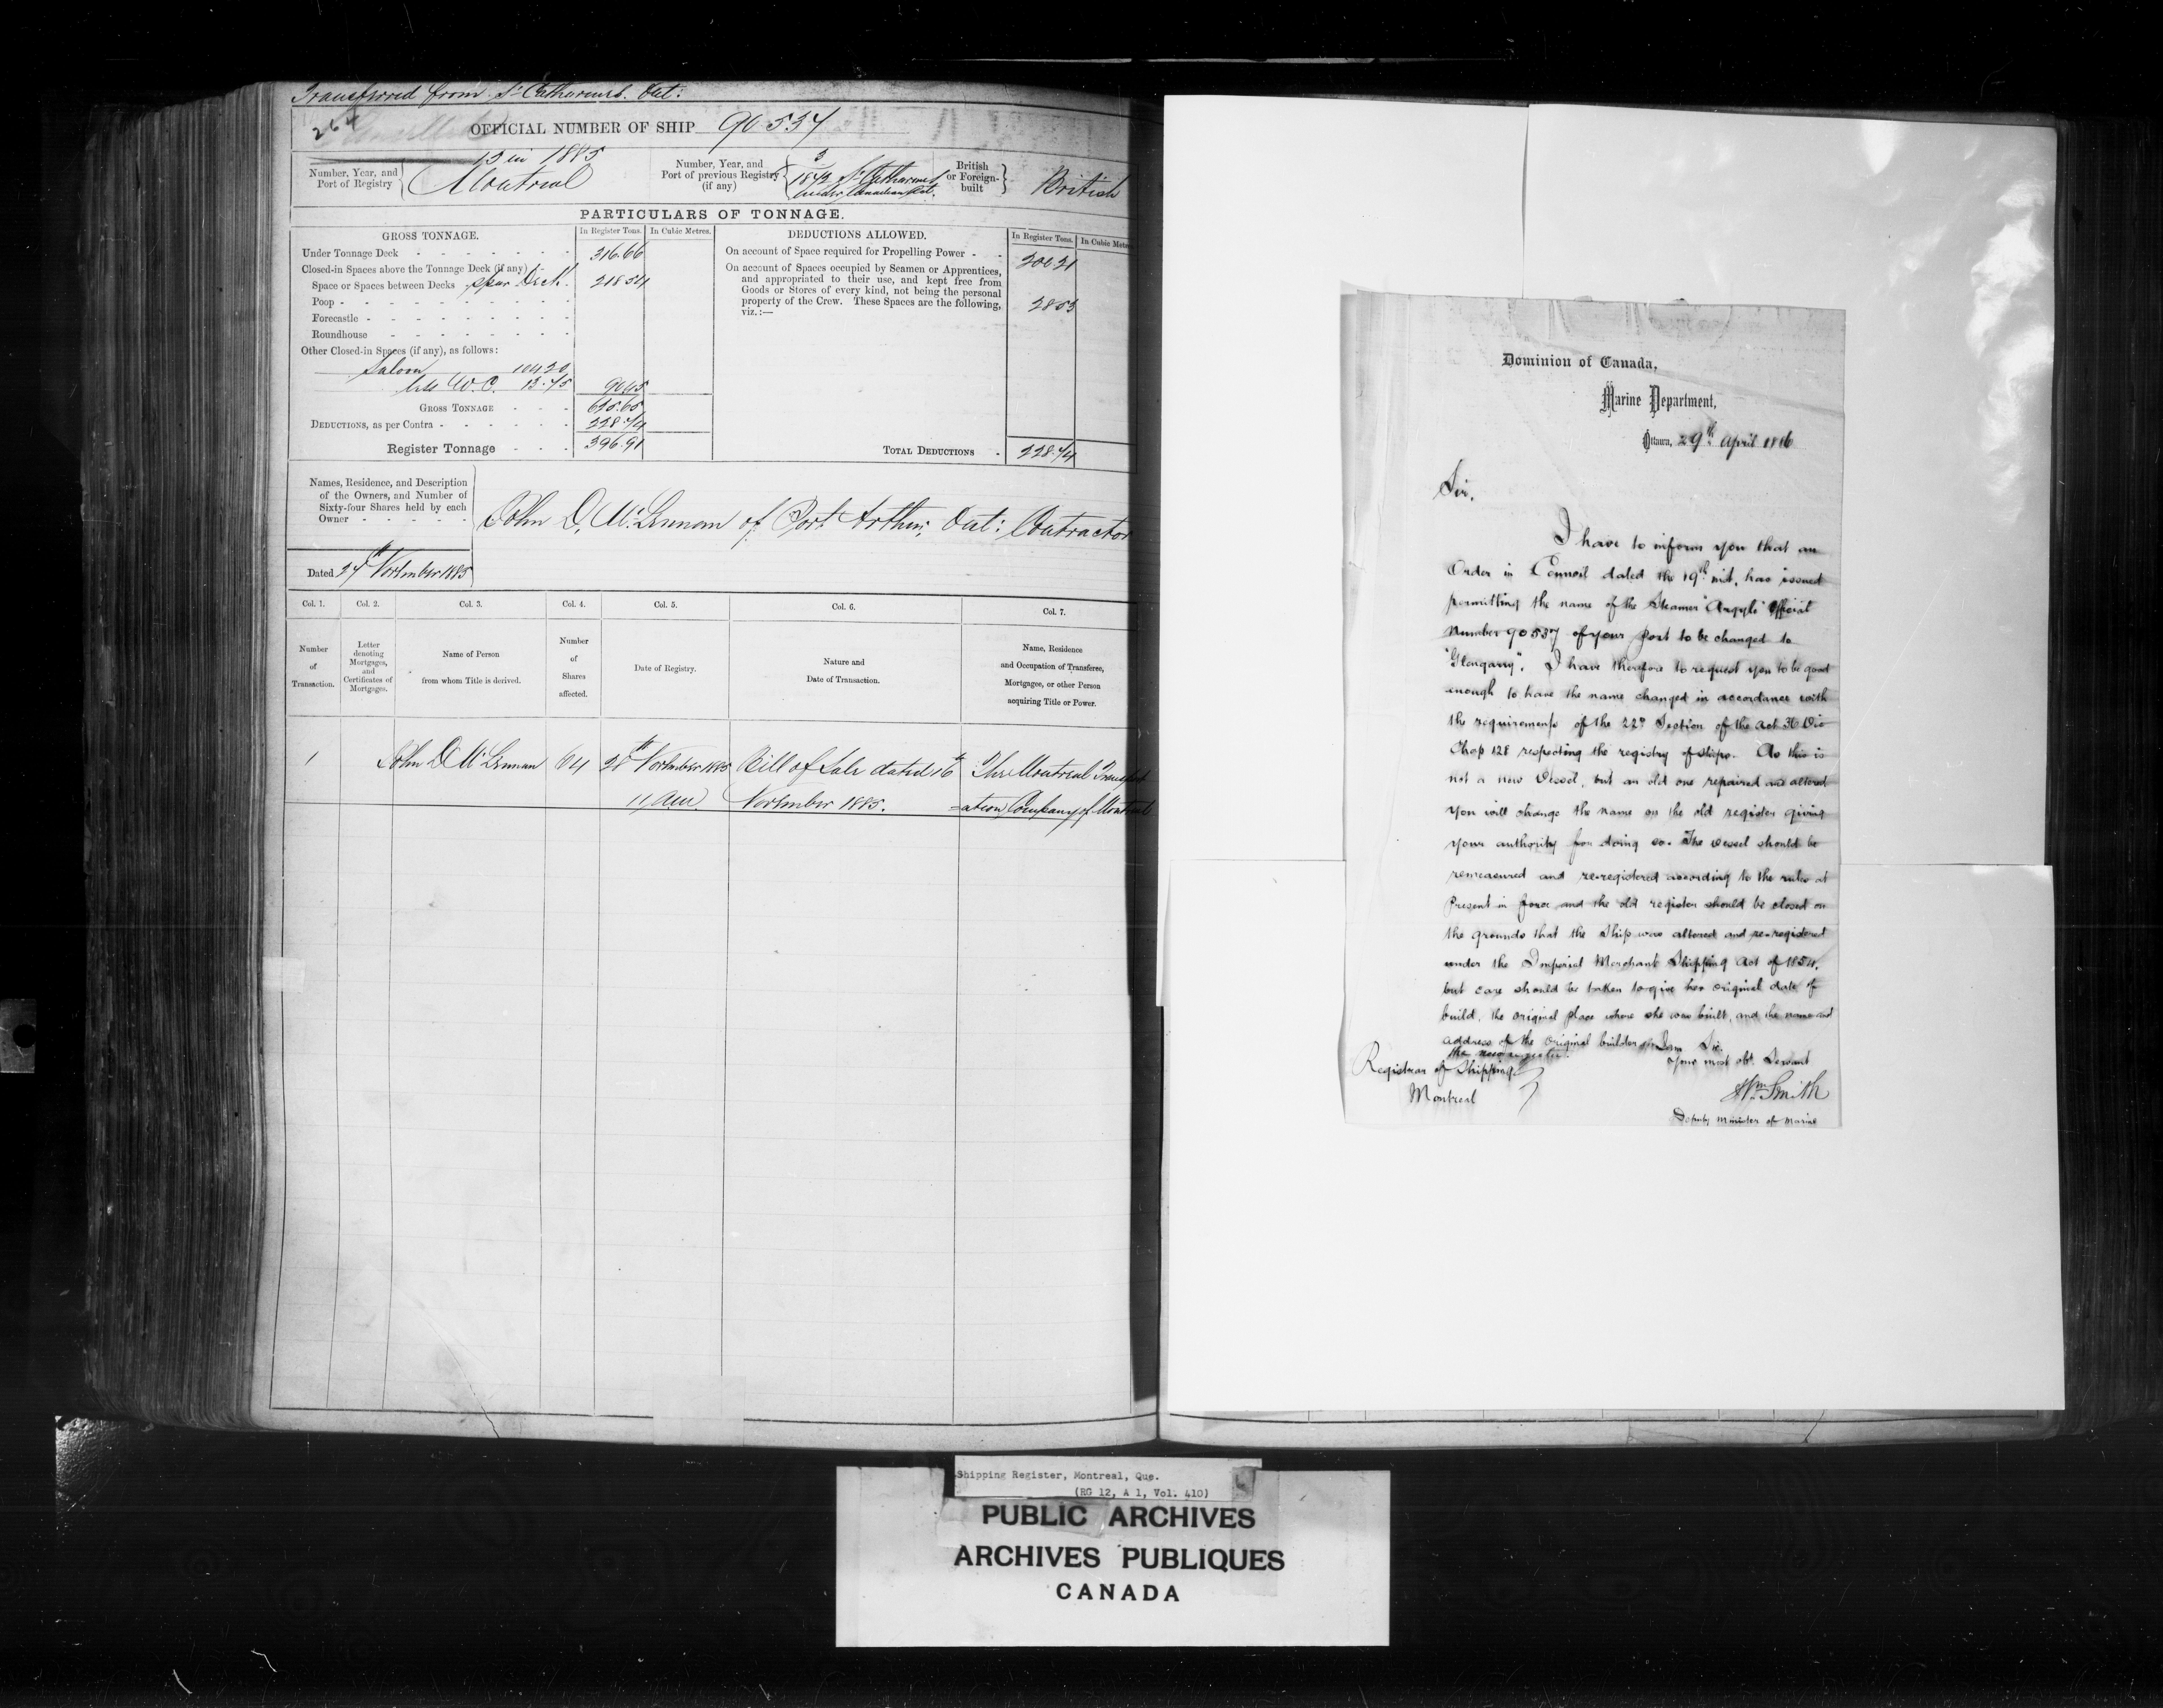 Transferred from St Catharines. Ont:
264
OFFICIAL NUMBER OF SHIP 90537
Number, Year, and
Port of Registry
13 in 1885
Montreal
Number, Year, and
Port of previous Registry
(if any)
3
St Catharines
under Canadian Act.
British
or Foreign-
built
British
PARTICULARS OF TONNAGE.
GROSS TONNAGE.
In Register Tons.
In Cubic Metres.
Under Tonnage Deck
316.66
Closed-in Spaces above the Tonnage Deck (if any)
Space or Spaces between Decks Spar Deck.
218 54
Poop
Forecastle
Roundhouse
Other Closed-in Spaces (if any), as follows:
Saloon 104 20
W.C. 13.75
90.45
GROSS TONNAGE
625.65
DEDUCTIONS, as per Contra
228.74
Register Tonnage
396.91
DEDUCTIONS ALLOWED.
In Register Tons.
In Cubic Metres
On account of Space required for Propelling Power
200 21
On account of Spaces occupied by Seamen or Apprentices,
and appropriated to their use, and kept free from
Goods or Stores of every kind, not being the personal
property of the Crew. These Spaces are the following,
viz.:—
28 53
TOTAL DEDUCTIONS
228.74
Names, Residence, and Description
of the Owners, and Number of
Sixty-four Shares held by each
Owner
John D. McLennan of Port Arthur; Ont: Contractor
Dated 27th November 1885
Col. 1.
Col. 2.
Col. 3.
Col. 4.
Col. 5.
Col. 6.
Col. 7.
Number
of
Transaction.
Letter
denoting
Mortgages,
and
Certificates of
Mortgages.
Name of Person
from whom Title is derived.
Number
of
Shares
affected.
Date of Registry.
Nature and
Date of Transaction.
Name, Residence
and Occupation of Transferee,
Mortgagee, or other Person
acquiring Title or Power.
1 John D McLennan 64 28th November 1885 Bill of Sale dated 16th The Montreal Transport
11 A.M. November 1885. =ation Company of Montreal
Dominion of Canada,
Marine Department,
Ottawa, 29th April 1886
Sir,
I have to inform you that an
Order in Council dated the 19th inst, has issued
permitting the name of the Steamer "Argyle" Official
Number 90537 of your port to be changed to
"Glengarry". I have therefore to request you to be good
enough to have the name changed in accordance with
the requirements of the 22nd Section of the Act 36 Vic
Chap 128 respecting the registry of ships. As this is
not a new Vessel, but an old one repaired and altered
you will change the name on the old register giving
your authority for doing so. The vessel should be
remeasured and re-registered according to the rules at
Present in force and the old register should be closed on
the grounds that the Ship was altered and re-registered
under the Imperial Merchant Shipping Act of 1854,
but care should be taken to give her original date of
build, the original place where she was built, and the name and
address of the original builder in
the new register.
I am Sir.
Your most obt. Servant
Wm Smith
Deputy Minister of Marine
Registrar of Shipping
Montreal
Shipping Register, Montreal, Que.
(RG 12, A 1, Vol. 410)
PUBLIC ARCHIVES
ARCHIVES PUBLIQUES
CANADA